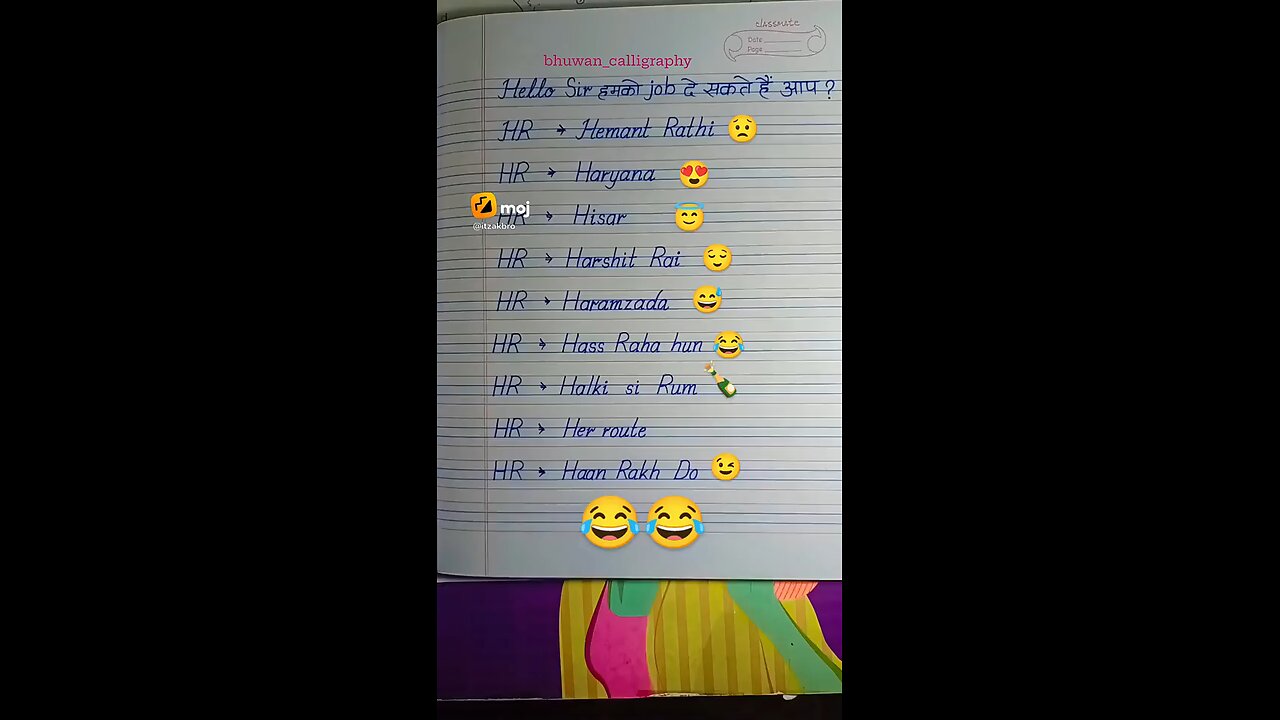 classmate
Date
Page
bhuwan_calligraphy
Hello Sir हमको job दे सकते हैं आप ?
HR → Hemant Rathi 😟
HR → Haryana 😍
HR → Hisar 😇
moj
@itzakbro
HR → Harshit Rai 😌
HR → Haramzada 😅
HR → Hass Raha hun 😂
HR → Halki si Rum 🍾
HR → Her route
HR → Haan Rakh Do 😉
😂😂